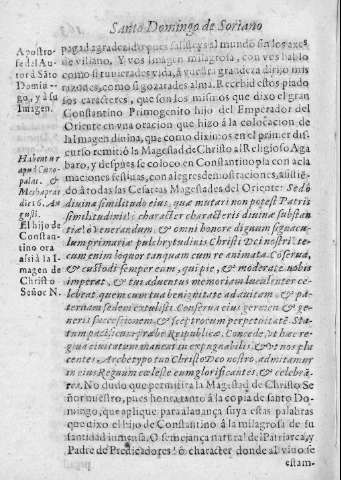 Santo Domingo de Soriano
Apostro-
fe del Au-
tor à Sãto
Domin-
go, y à su
Imagen.
Habentur
apud Curo-
palat. &
Metaphras
die 16. Au-
gusti.
El hijo de
Constan-
tino ora
assi à la I-
magen de
Christo
Señor N.
pagad agradecido pues salisteys al mundo sin los axes
de villano. Y vos Imagen milagrosa, con vos hablo
como si tuvierades vida, à vuestra grandeza dirijo mis
razones, como si gozarades alma. Recebid estos piado
sos caracteres, que son los mismos que dixo el gran
Constantino Primogenito hijo del Emperador del
Oriente en una oracion que hizo à la colocacion de
la Imagen divina, que como diximos en el primer dis-
curso remitiò la Magestad de Christo al Religioso Aga
baro, y despues se coloco en Constantinopla con acla
maciones festivas, con alegres demostraciones, assistiẽ
do à todas las Cesareas Magestades del Oriente: Sed ò
divina similitudo eius, quæ mutari non potest Patris
similitudinis! ò character characteris divinæ substan
tiæ! ò venerandum, & omni honore dignum segnacu-
lum primariæ pulchrytudinis Christi Dei nostri! te-
cum enim loquor tanquam cum re animata. Coserua,
& custodi semper eum, qui pie, & moderate nobis
imperat, & tui adventus memoriam luculenter ce-
lebrat quem cum tua benignitate ad avitam, & pa-
ternam sedem extulisti. Conserva eius germen & ge-
neris successionem, & sceptrorum perpetuitatẽ. Sta-
tum pacificum præbe Reipublicæ. Concede, vt hæc re-
gina civitatum maneat in expugnabilis, & vt nos pla
centes Archetypo tuo Christo Deo nostro, admitamur
in eius Regnum cœleste eum glorificantes, & celebrã-
tes. No dudo que permitirà la Magestad de Christo Se
ñor nuestro, pues honra tanto à la copia de santo Do-
mingo, que aplique para alavança suya estas palabras
que dixo el hijo de Constantino à la milagrosa de su
santidad inmensa. O semejança natural del Patriarca, y
Padre de Predicadores! ò character donde al vivo se
estam-